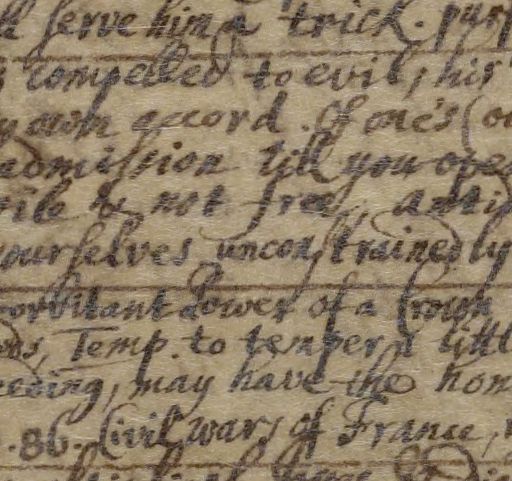 serve him a trick. purp
compelled to evil, his
own accord. Of one's (ow
admission till you ope
& not free, anti
yourselves unconstrainedly
orbitant Power of a Crown
Temp. to temper a littl
eeding, may have the hon
.86. Civil wars of France,